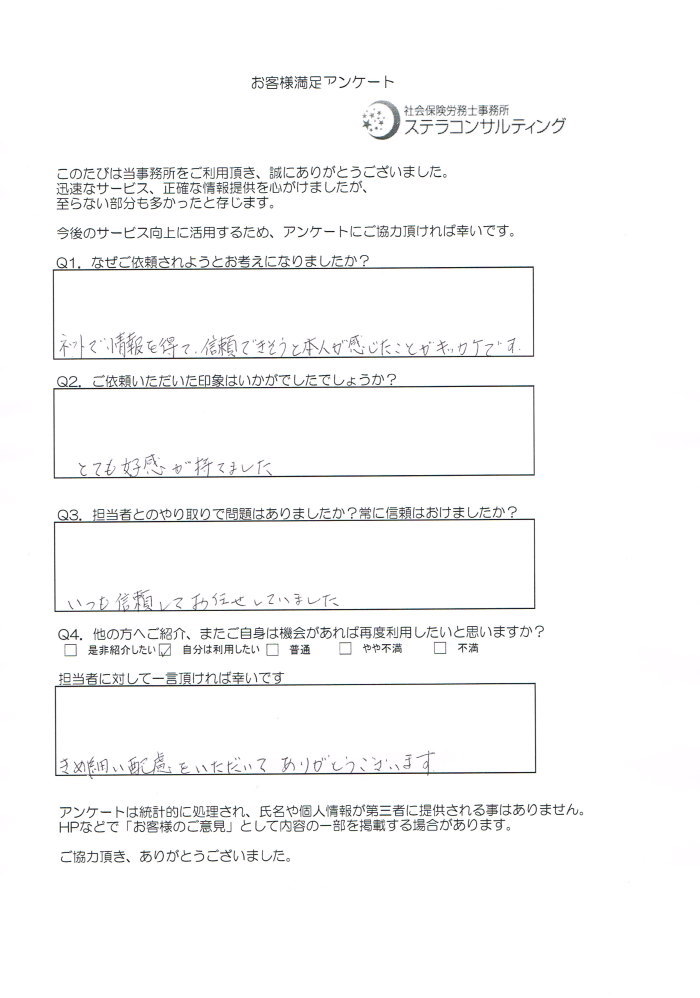 お客様満足アンケート
社会保険労務士事務所
ステラコンサルティング
このたびは当事務所をご利用頂き、誠にありがとうございました。
迅速なサービス、正確な情報提供を心がけましたが、
至らない部分も多かったと存じます。
今後のサービス向上に活用するため、アンケートにご協力頂ければ幸いです。
Q1．なぜご依頼されようとお考えになりましたか？
ネットで情報を得て、信頼できそうと本人が感じたことがキッカケです。
Q2．ご依頼いただいた印象はいかがでしたでしょうか？
とても好感が持てました
Q3．担当者とのやり取りで問題はありましたか？常に信頼はおけましたか？
いつも信頼してお任せしていました
Q4．他の方へご紹介、またご自身は機会があれば再度利用したいと思いますか？
□ 是非紹介したい ☑ 自分は利用したい □ 普通 □ やや不満 □ 不満
担当者に対して一言頂ければ幸いです
きめ細い配慮をいただいてありがとうございます
アンケートは統計的に処理され、氏名や個人情報が第三者に提供される事はありません。
HPなどで「お客様のご意見」として内容の一部を掲載する場合があります。
ご協力頂き、ありがとうございました。